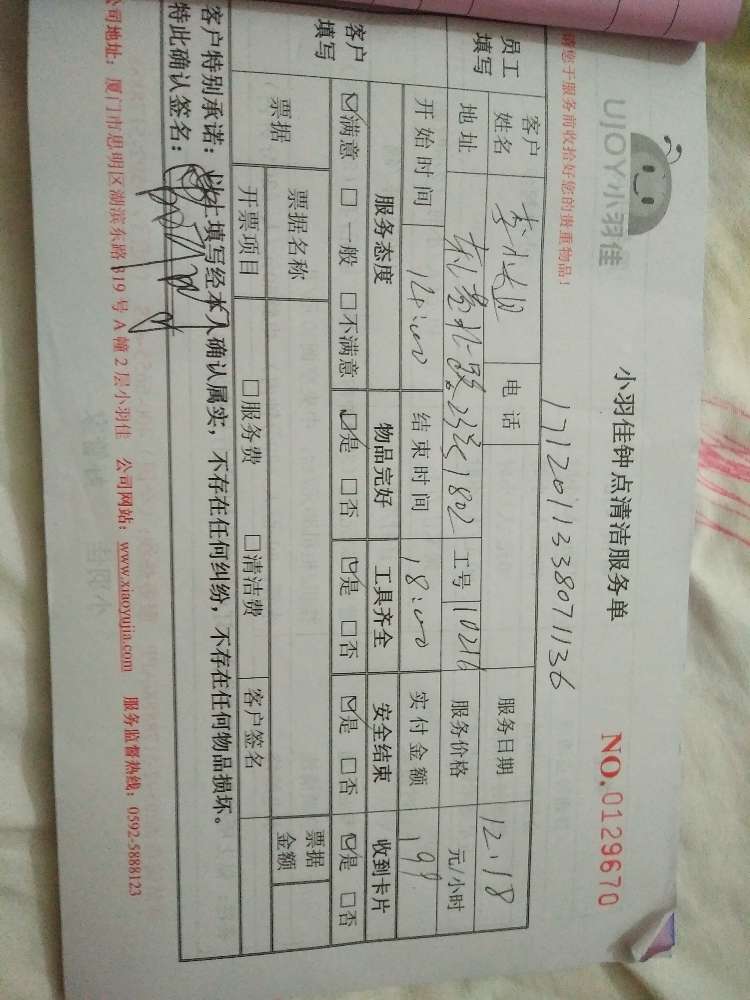 UJOY小羽佳
小羽佳钟点清洁服务单
NO.0129670
请您于服务前收拾好您的贵重物品!
1712011338071136
员工填写 客户姓名 电话 服务日期 12.18
地址 1802 工号 10216 服务价格 元/小时
开始时间 14:00 结束时间 18:00 实付金额 199
客户填写 服务态度 物品完好 工具齐全 安全结束 收到卡片
满意 一般 不满意 是 否 是 否 是 否 是 否
票据 票据名称 票据金额
开票项目 服务费 清洁费 客户签名
客户特别承诺:以上填写经本人确认属实,不存在任何纠纷,不存在任何物品损坏。
特此确认签名:
公司地址:厦门市思明区湖滨东路319号A幢2层小羽佳 公司网站:www.xiaoyujia.com 服务监督热线:0592-5888123